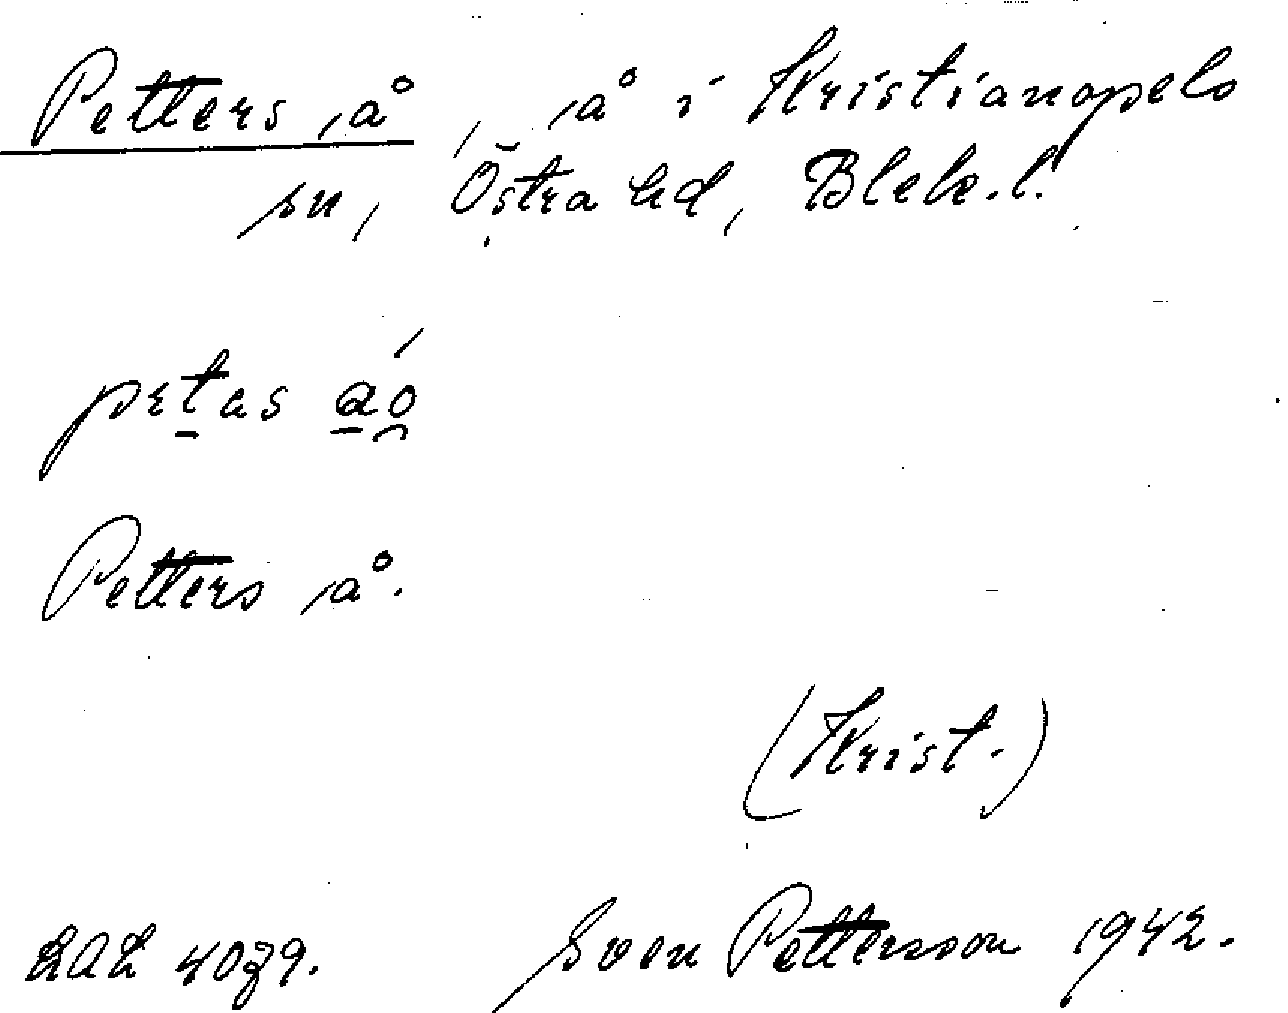 Petters å, å i Kristianopels
sn, Östra hd, Blek. l.
petas aó
Petters å.
(Krist.)
LAL 4079.
Sven Pettersson 1942.